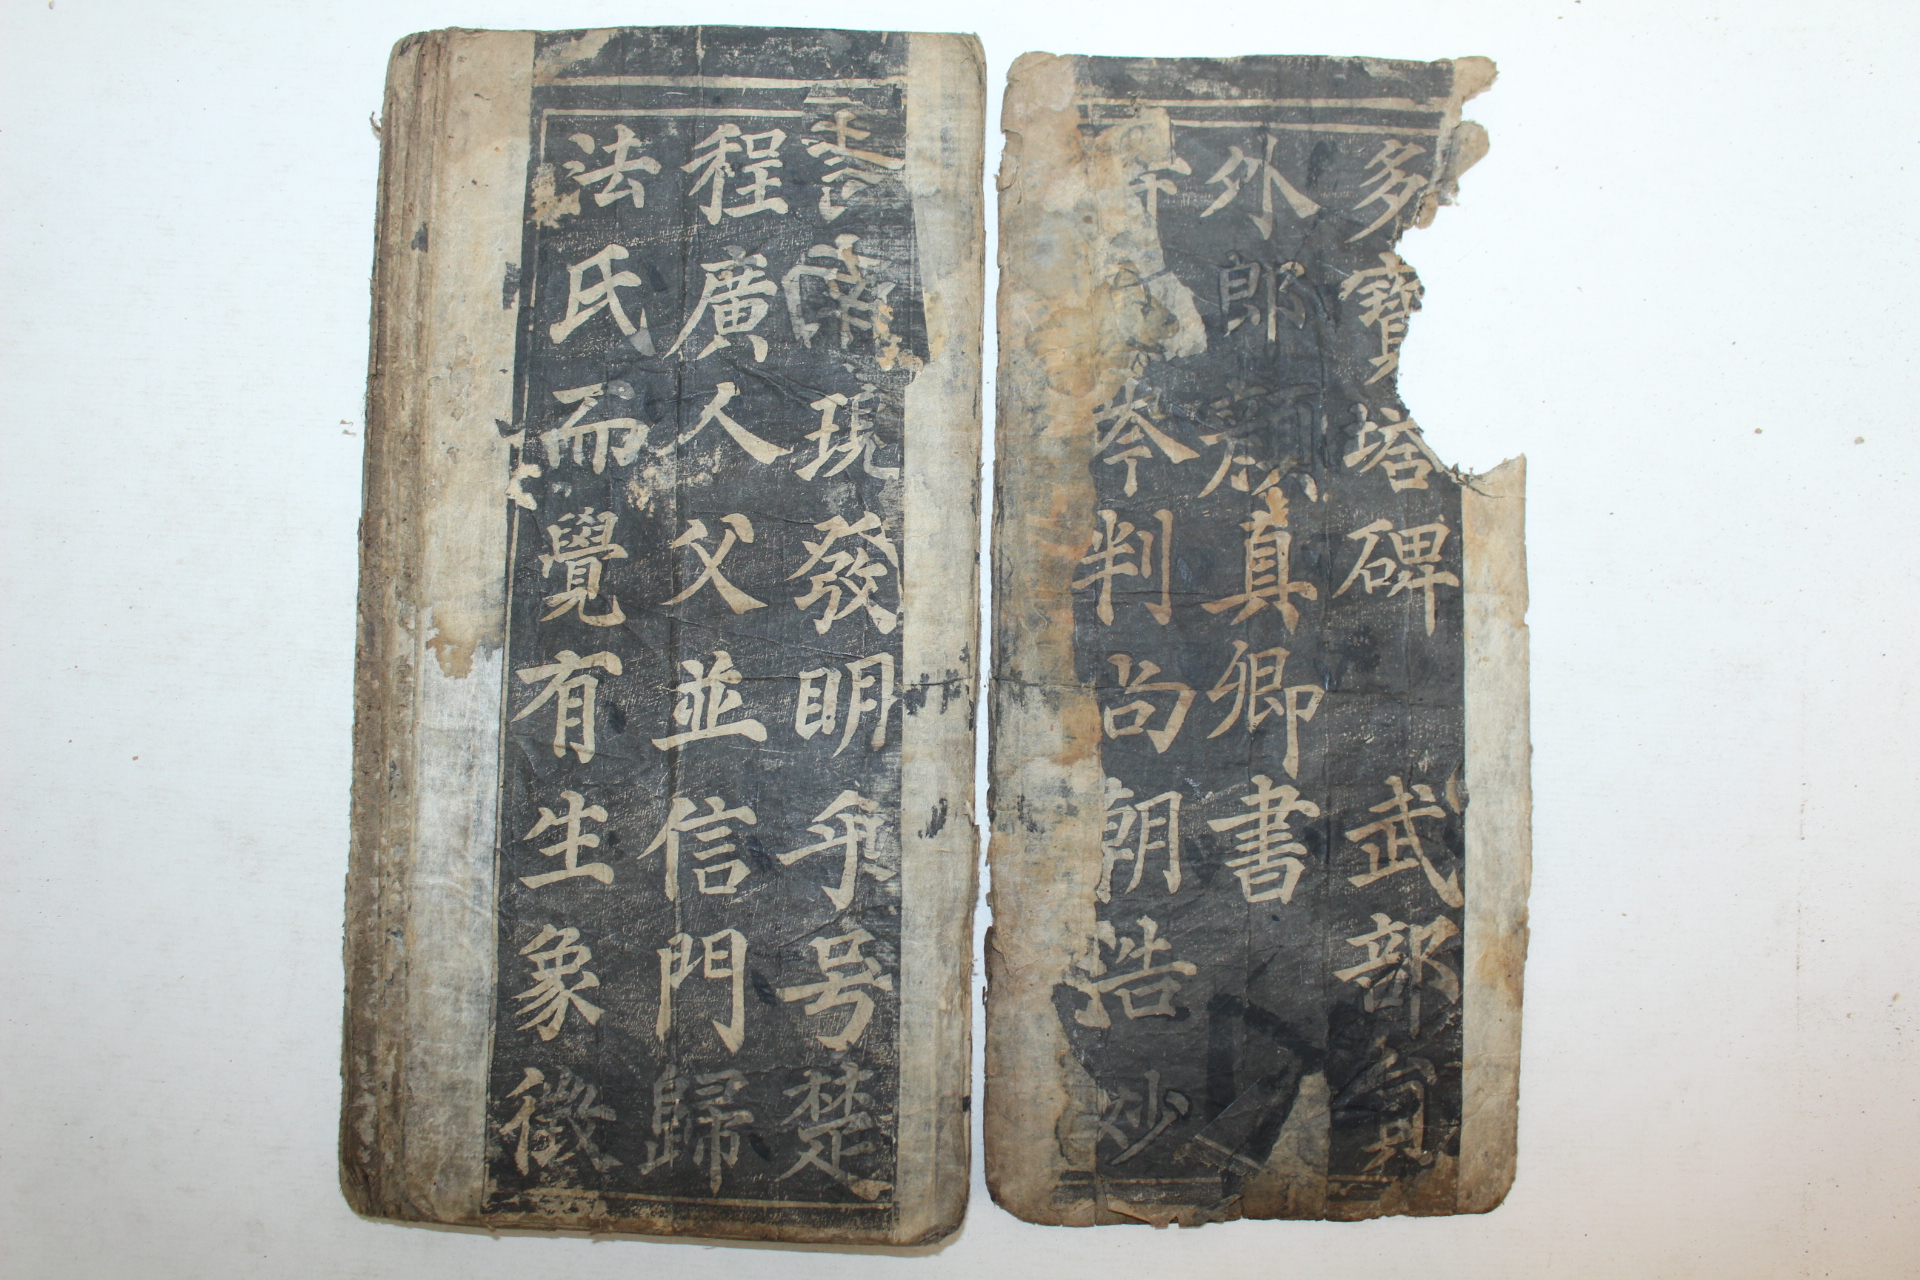 多寶塔碑 武部員
外郎顏真卿書
岑判尚朝浩妙
南現發明乎号楚
程廣人父並信門歸
法氏而覺有生象徵